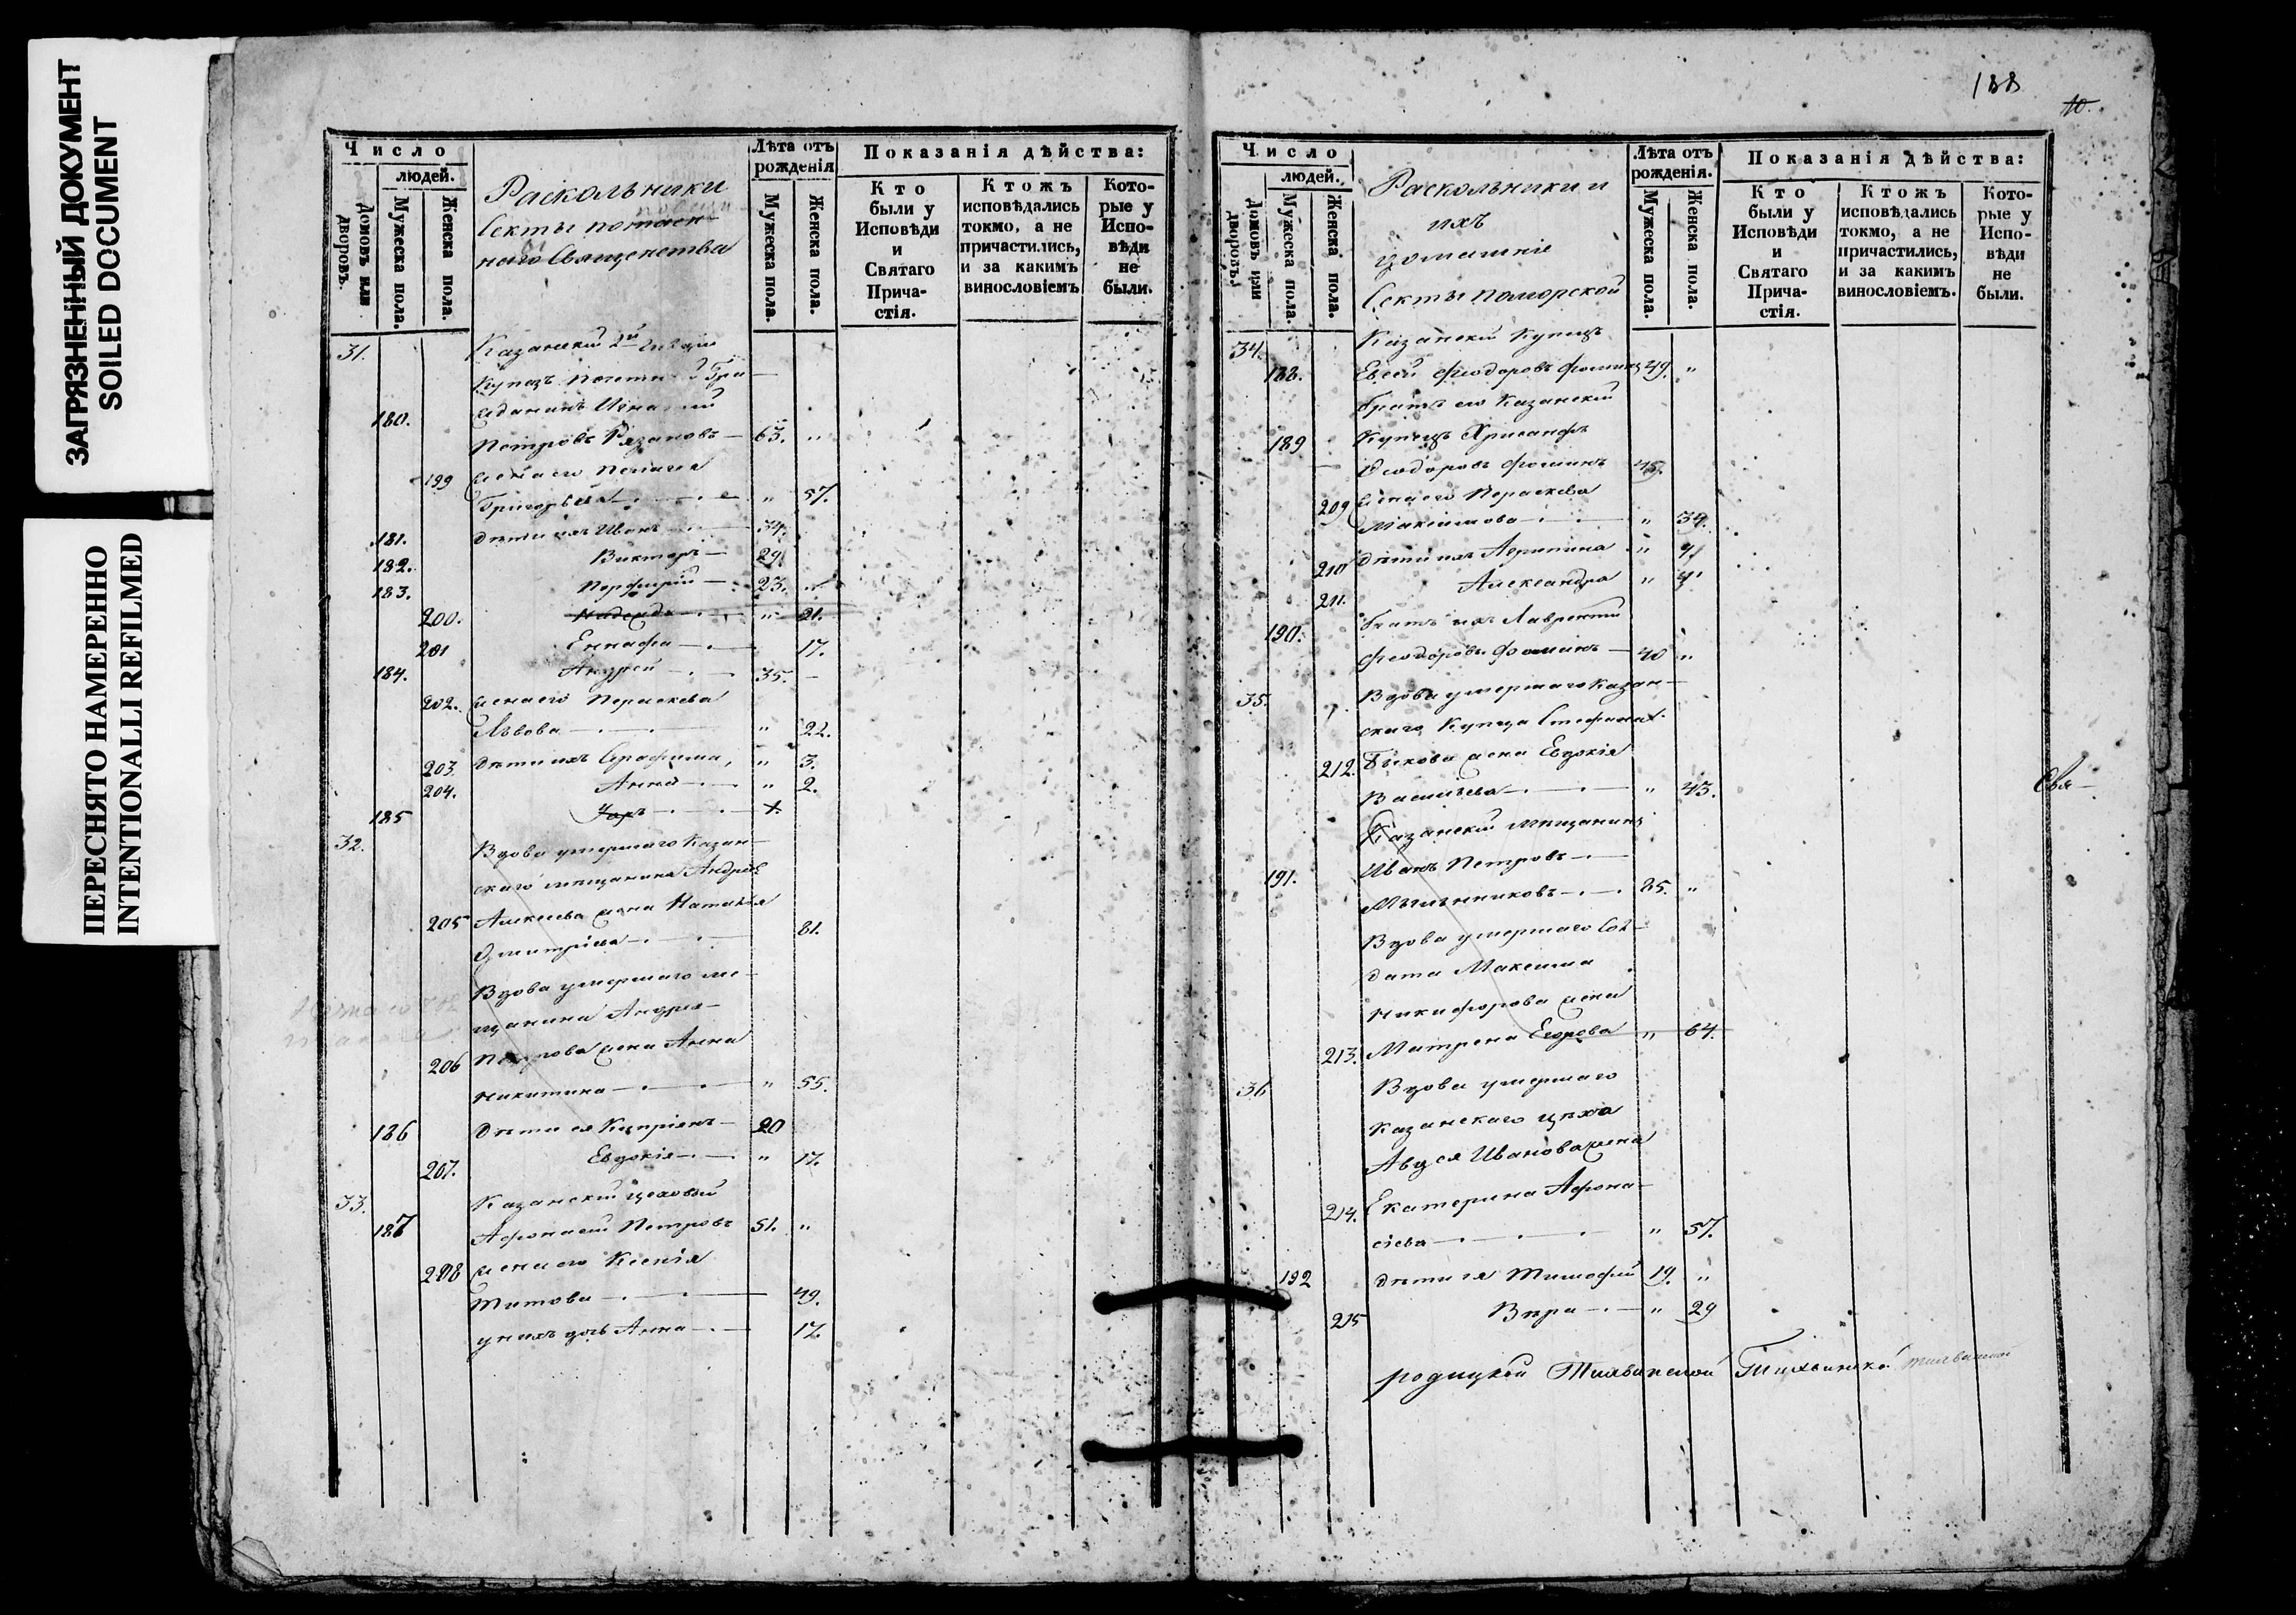 ЗАГРЯЗНЕННЫЙ ДОКУМЕНТ
SOILED DOCUMENT
ПЕРЕСНЯТО НАМЕРЕННО
INTENTIONALLI REFILMED
Число
людей.
Домовъ или дворовъ.
Мужеска пола.
Женска пола.
Раскольники
Секты
наго Священства
Лѣта отъ рожденія
Мужеска пола.
Женска пола.
Показанія дѣйства:
Кто были у Исповѣди и Святаго Прича-стія.
Ктожъ исповѣдались токмо, а не причастились, и за какимъ винословіемъ
Кото-рые у Испо-вѣди не были.
31. Казанский 2й Гильдіи
Купецъ Гра-
180. жданинъ
Петровъ Рязановъ — 63. "
199 жена его Пелагея
Григорьева " 57.
181. дѣти ихъ Иванъ 34.
182. Викторъ — 29
183. Порфирій — 23. "
200. Надежда " 21.
201 17.
184. Андрей 35. –
202. жена его Пераскева
Львова " 22.
203. дѣти ихъ Серафима, " 3.
204. Анна " 2.
185
32. Вдова умершаго Казан-
скаго мещанина Андрея
205 Алексеева жена Наталья
Дмитріева 81.
Вдова умершаго ме-
щанина Андрея
206 жена Анна
Никитина " 55.
186 дѣти ея Кипріянъ — 20
207. Евдокія " 17.
33. Казанский цеховый
187 Афонасий Петровъ 51. "
208 жена его Ксенія
Титова 49.
у нихъ дочь Анна 17.
188
10.
Число
людей.
Домовъ или дворовъ.
Мужеска пола.
Женска пола.
Раскольники и
ихъ
домашніе
Секты поморской
Лѣта отъ рожденія.
Мужеска пола.
Женска пола.
Показанія дѣйства:
Кто были у Исповѣди и Святаго Прича-стія.
Ктожъ исповѣдались токмо, а не причастились, и за какимъ винословіемъ.
Кото-рые у Испо-вѣди не были.
34. Казанский Купецъ
188. Евсей Феодоровъ Фоминъ 49. "
братъ его Казанский
189 Купецъ Хрисанфъ
Феодоровъ Фоминъ 45.
209 жена его Пераскева
Максимова " 34.
210 дѣти ихъ Агрипина "
211. Александра "
190. братъ ихъ Лаврентий
Феодоровъ Фоминъ — 40 "
35. Вдова умершаго Казан-
скаго Купца Стефана
212. Быкова жена Евдокія
Васильева " 43.
Свя-
Казанский мещанинъ
191. Иванъ Петровъ
Мыльниковъ 85. "
Вдова умершаго Сол-
дата Максима
Никифорова жена
213. Матрена Егорова " 64.
36 Вдова умершаго
Казанскаго цеха
Авдея Иванова жена
214. Екатерина Афона-
сіева " 57.
192 дѣти ея Тимофей 19. "
215 Вѣра " 29
Тихвинской Тихвинской